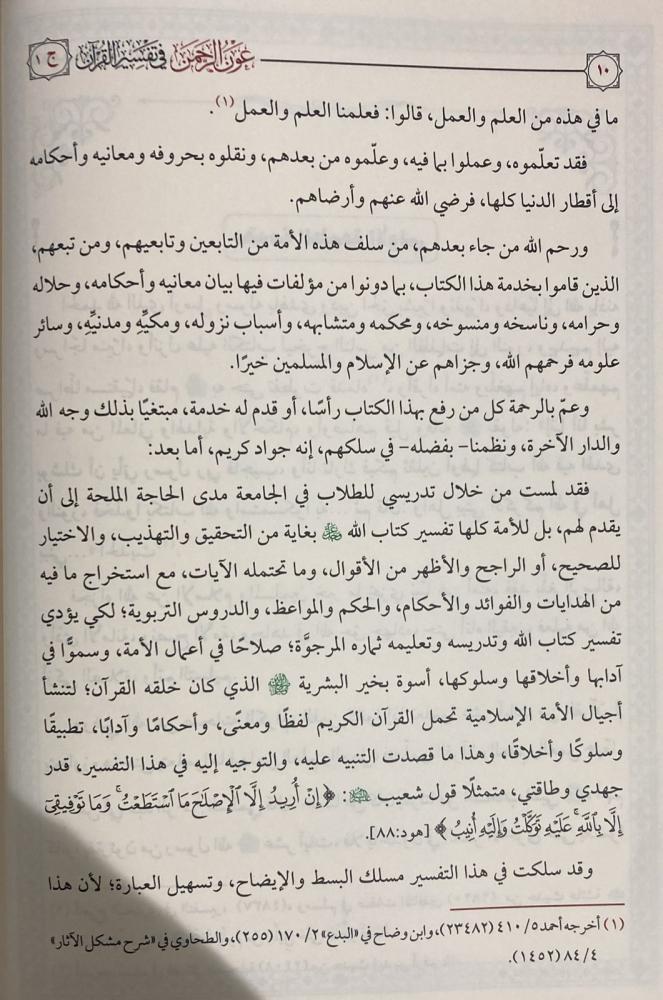 ١٠ عون الرحمن في تفسير القرآن ج ١
ما في هذه من العلم والعمل، قالوا: فعلمنا العلم والعمل(١).
فقد تعلّموه، وعملوا بما فيه، وعلّموه من بعدهم، ونقلوه بحروفه ومعانيه وأحكامه
إلى أقطار الدنيا كلها، فرضي الله عنهم وأرضاهم.
ورحم الله من جاء بعدهم، من سلف هذه الأمة من التابعين وتابعيهم، ومن تبعهم،
الذين قاموا بخدمة هذا الكتاب، بما دونوا من مؤلفات فيها بيان معانيه وأحكامه، وحلاله
وحرامه، وناسخه ومنسوخه، ومحكمه ومتشابهه، وأسباب نزوله، ومكيِّه ومدنيِّه، وسائر
علومه فرحمهم الله، وجزاهم عن الإسلام والمسلمين خيرًا.
وعمّ بالرحمة كل من رفع بهذا الكتاب رأسًا، أو قدم له خدمة، مبتغيًا بذلك وجه الله
والدار الآخرة، ونظمنا- بفضله- في سلكهم، إنه جواد كريم، أما بعد:
فقد لمست من خلال تدريسي للطلاب في الجامعة مدى الحاجة الملحة إلى أن
يقدم لهم، بل للأمة كلها تفسير كتاب الله ﷻ بغاية من التحقيق والتهذيب، والاختيار
للصحيح، أو الراجح والأظهر من الأقوال، وما تحتمله الآيات، مع استخراج ما فيه
من الهدايات والفوائد والأحكام، والحكم والمواعظ، والدروس التربوية؛ لكي يؤدي
تفسير كتاب الله وتدريسه وتعليمه ثماره المرجوَّة؛ صلاحًا في أعمال الأمة، وسموًّا في
آدابها وأخلاقها وسلوكها، أسوة بخير البشرية ﷺ الذي كان خلقه القرآن؛ لتنشأ
أجيال الأمة الإسلامية تحمل القرآن الكريم لفظًا ومعنًى، وأحكامًا وآدابًا، تطبيقًا
وسلوكًا وأخلاقًا، وهذا ما قصدت التنبيه عليه، والتوجيه إليه في هذا التفسير، قدر
جهدي وطاقتي، متمثلًا قول شعيب: ﴿إِنْ أُرِيدُ إِلَّا ٱلْإِصْلَٰحَ مَا ٱسْتَطَعْتُ ۚ وَمَا تَوْفِيقِىٓ
إِلَّا بِٱللَّهِ ۚ عَلَيْهِ تَوَكَّلْتُ وَإِلَيْهِ أُنِيبُ﴾ [هود:٨٨].
وقد سلكت في هذا التفسير مسلك البسط والإيضاح، وتسهيل العبارة؛ لأن هذا
(١) أخرجه أحمد ٥/ ٤١٠ (٢٣٤٨٢)، وابن وضاح في «البدع» ٢/ ١٧٠ (٢٥٥)، والطحاوي في «شرح مشكل الآثار»
٤/ ٨٤ (١٤٥٢).